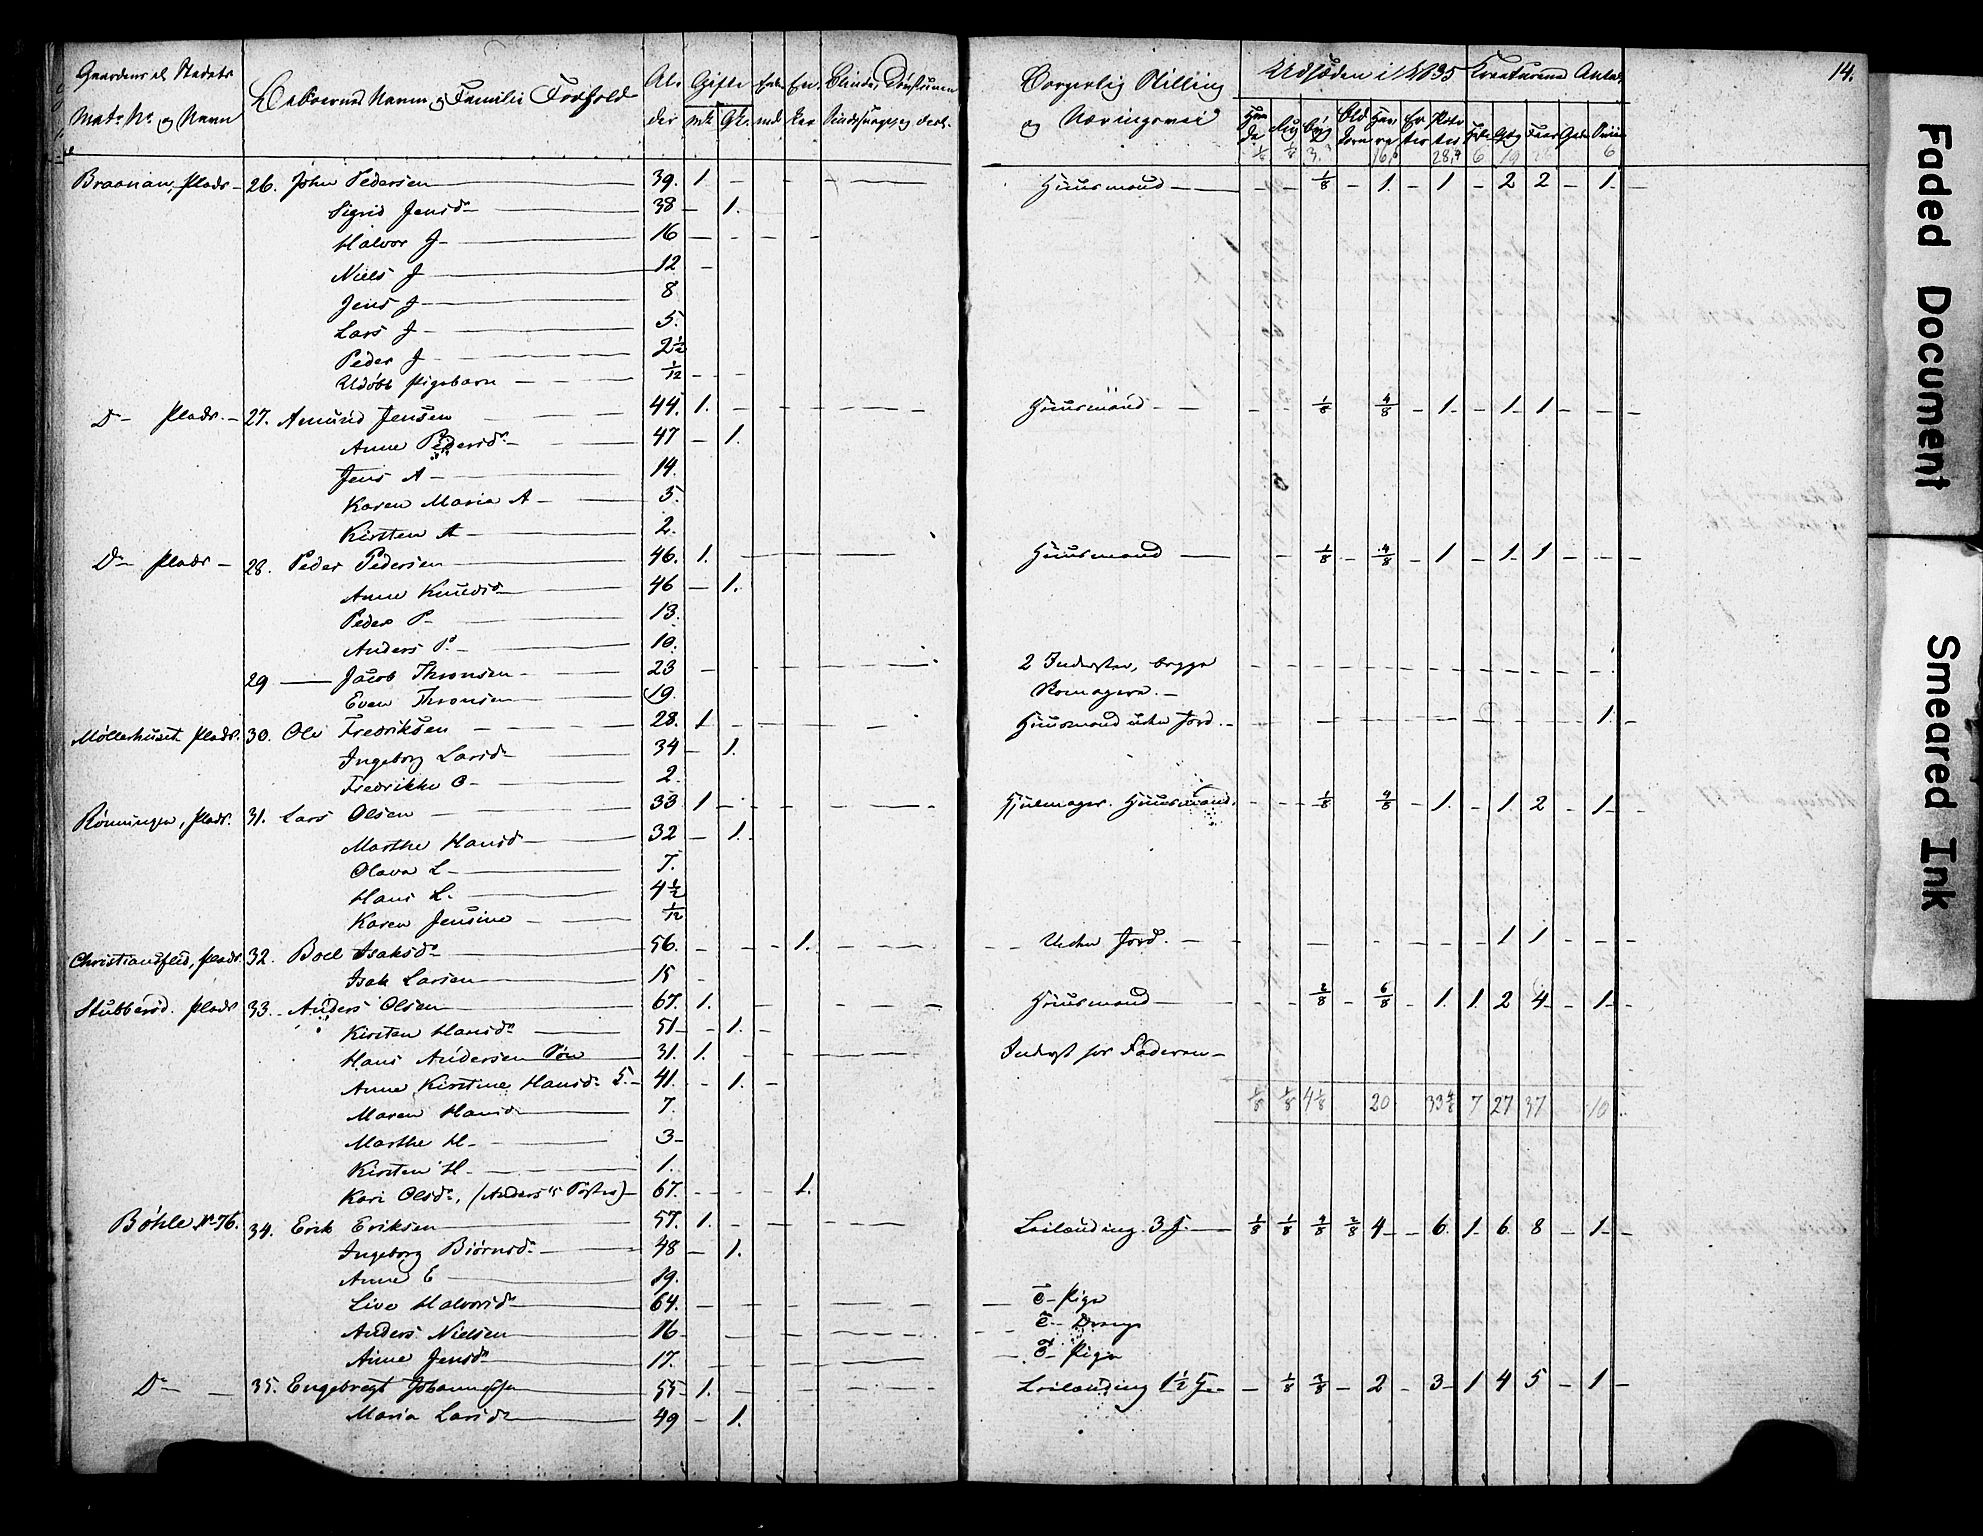 Gaardens el Stedets
Matr. No. og Navn
Beboernes Navne og Familie Forhold
Alder
Gifte
Mk.
Qk.
Udsæden i 1835
Kreaturenes Antal
14.
Borgerlig Stilling
og Næringsvei
Braanan, Plads - 26. John Pedersen 39. 1. Huusmand 1/8 1. 1 2 2 1.
Sigrid Jensd. 38 1.
Halvor J. 16
Niels J. 12
Jens J. 8
Lars J. 5.
Peder J. 2 1/2
Udøbt Pigebarn 1/12
Do Plads 27. Amund Jensen 44. 1. Huusmand 1/8 4/8 1. 1. 1.
Anne Pedersd. 47 1.
Jens A. 14.
Karen Maria A. 5.
Kirsten A. 2.
Do Plads 28. Peder Pedersen 46. 1. Huusmand 1/8 4/8 1 1. 1
Anne Knudsd. 46 1.
Peder P. 13.
Anders P. 10.
29 Jacob Thronsen 23 2 Inderster, begge
Even Thronsen 19. Skomagere.
Møllerhuset Plads. 30. Ole Fredriksen 28. 1 Huusmand uden Jord. 1.
Ingeborg Larsd. 34 1.
Fredrikke O. 2.
Rønningen, Plads. 31. Lars Olsen 33 1 Hjulmager. Huusmand. 1/8 4/8 1. 1. 2 1.
Marthe Hansd. 32 1.
Olava L. 7.
Hans L. 4 1/2
Karen Jensine 1/12
Christiansfled, Plads. 32. Boel Isaksd. 56. 1. Uden Jord. 1 1.
Isak Larsen 15
Stubberød. Plads 33. Anders Olsen 67. 1. Huusmand 2/8 6/8 1. 1. 2 4 1.
Kirsten Hansd. 51 1.
Hans Andersen Søn 31. 1. Inderst hos Faderen
Anne Kirstine Hansd. 41. 1.
1/8 1/8 4 1/8 20 33 4/8 7 27 37 10
Maren Hansd. 7.
Marthe H. 3
Kirsten H. 1.
Kari Olsd., (Anders's Søster) 67. 1.
Bøhle No. 76. 34. Erik Eriksen 57. 1. Leilænding. 1/8 1/8 4/8 2/8 4 6. 1. 6. 8 1
Ingeborg Biørnsd. 48 1.
Anne E 19.
Live Halvorsd. 64. T- Pige
Anders Nielsen 16 T- Dreng
Anne Jensd. 17. T- Pige
Do 35. Engebregt Johannessen 55 1. Leilænding 1/8 3/8 2 3 1 4 5 1
Maria Larsd. 49 1.
Faded Document
Smeared Ink